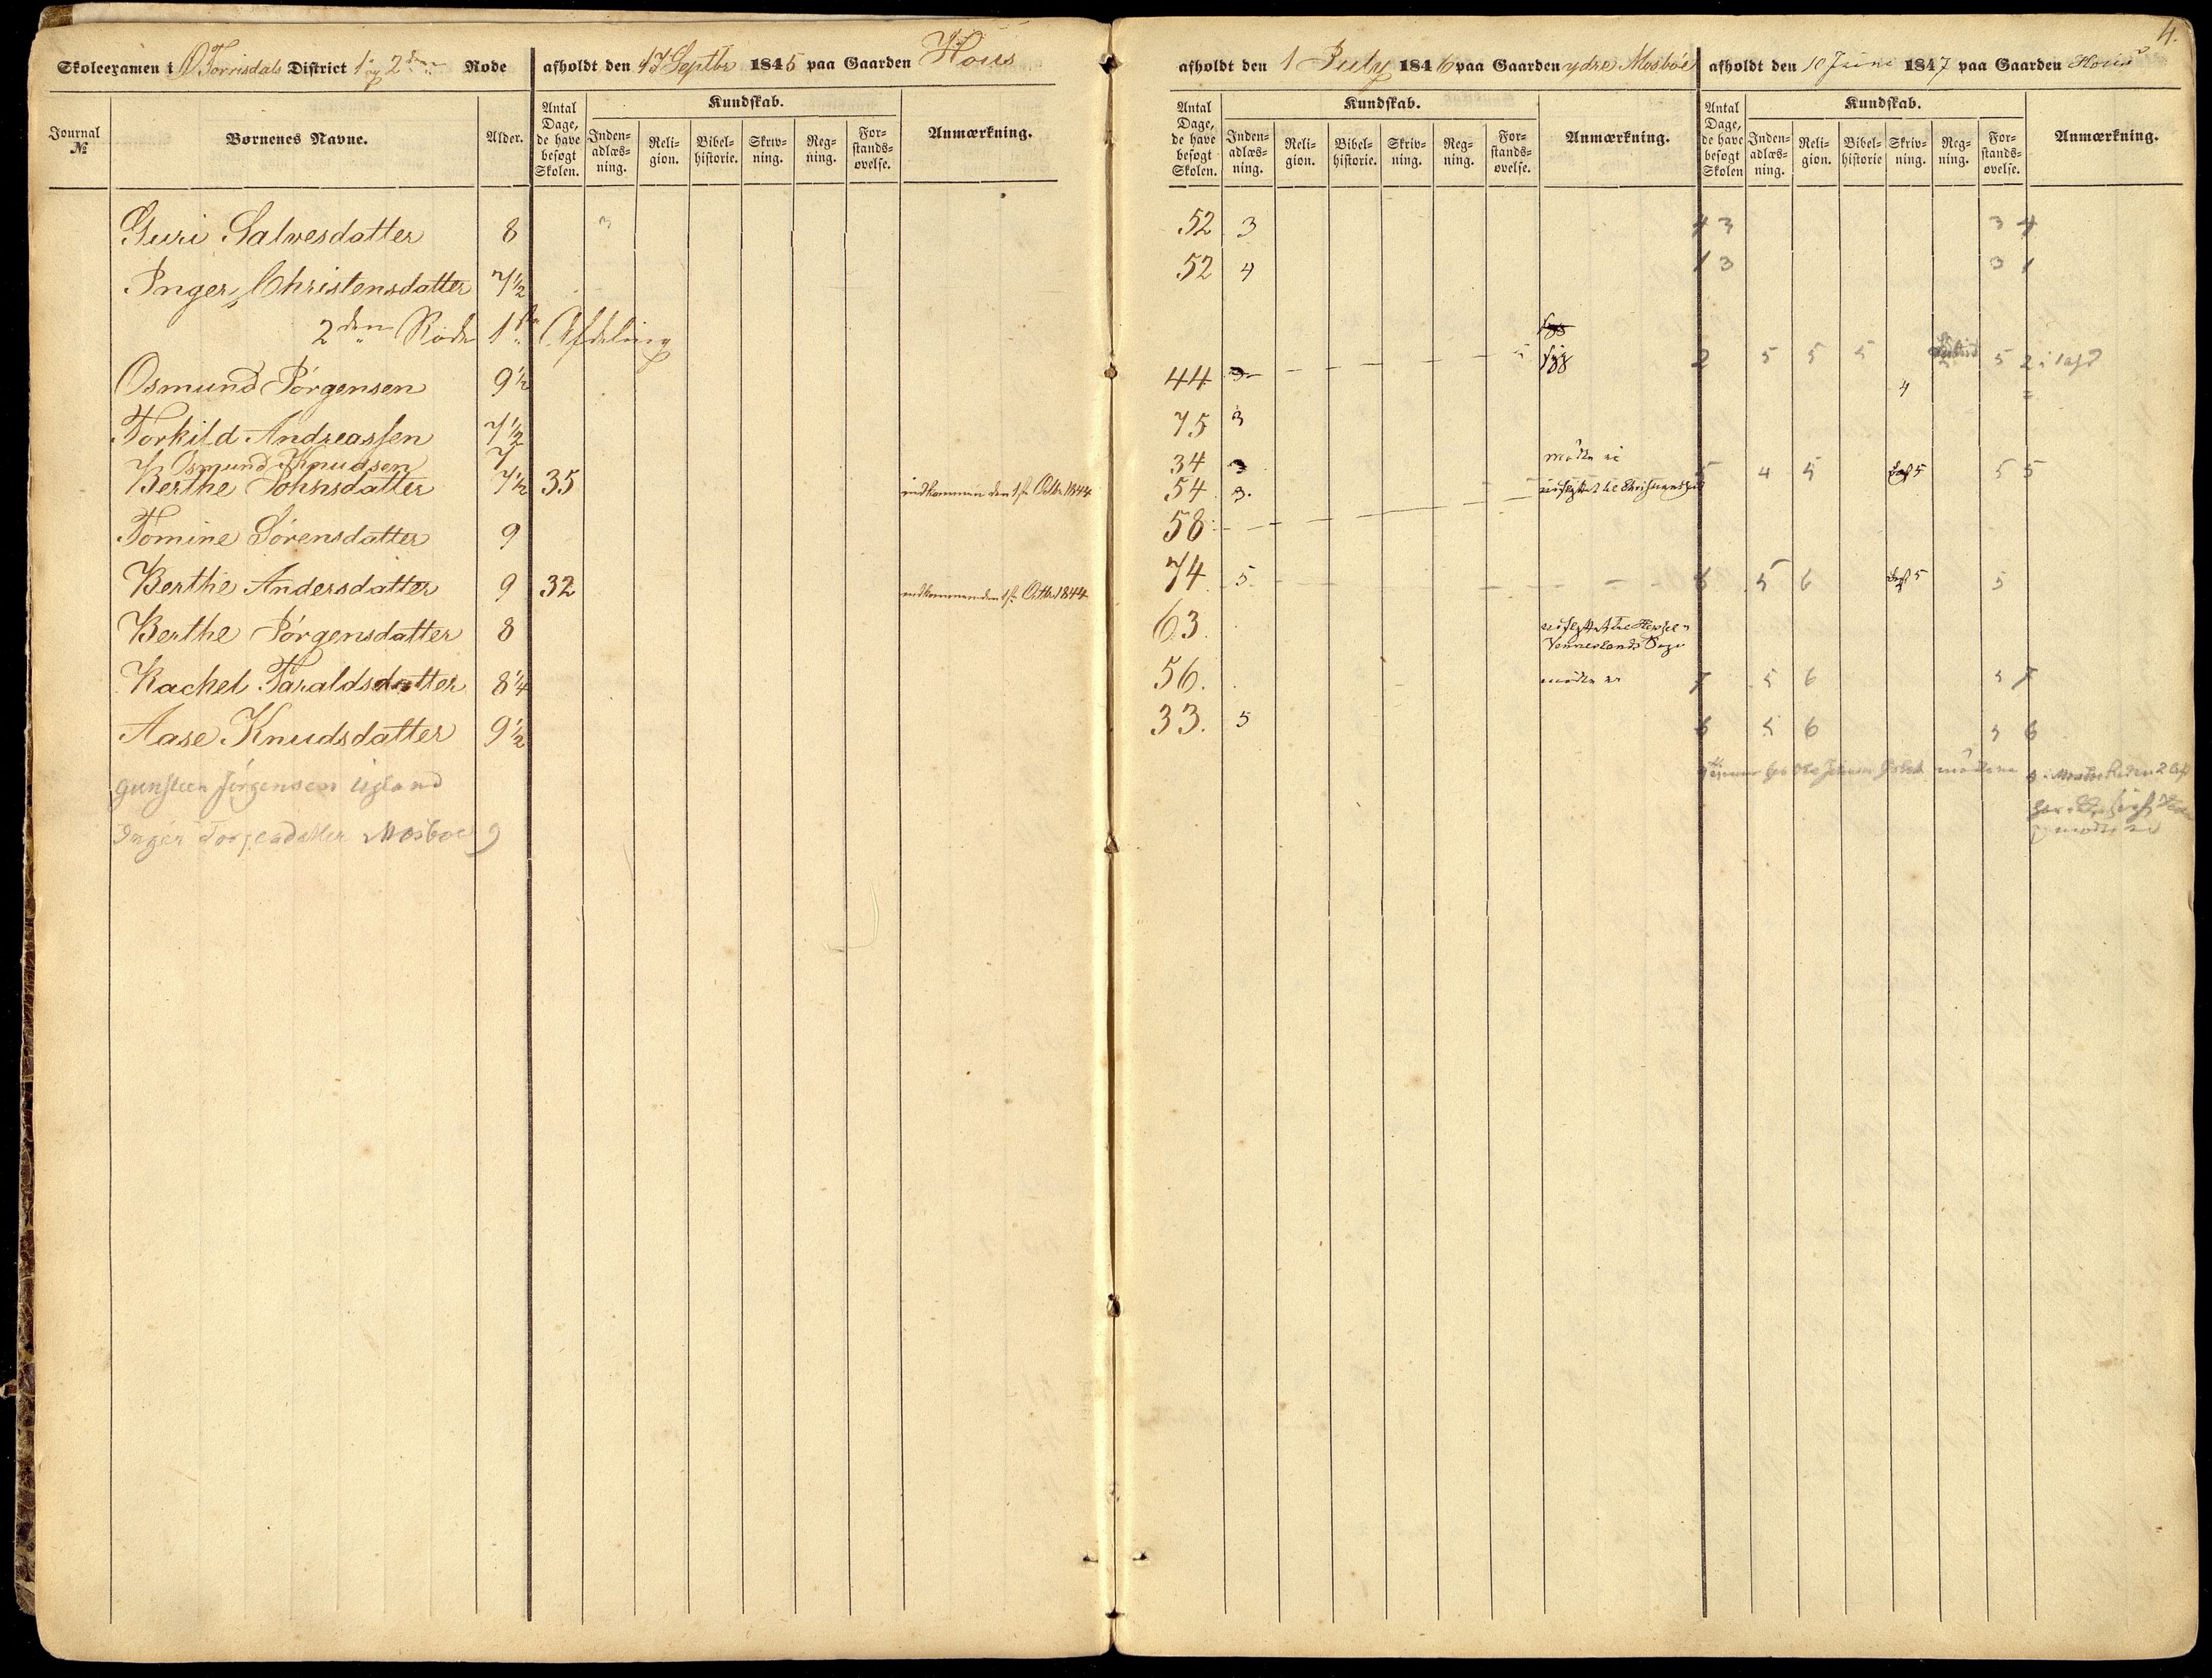 4.
Skoleexamen i Torrisdals District 1 og 2den Rode afholdt den 17 Septbr 1845 paa Gaarden Hous
afholdt den 1 July 1846 paa Gaarden ydre Mosbøe afholdt den 10 Juni 1847 paa Gaarden Hous
Journal № Børnenes Navne. Alder. Antal Dage, de have besøgt Skolen. Kundskab. Inden-adlæs-ning. Reli-gion. Bibel-historie. Skriv-ning. Reg-ning. For-stands-øvelse. Anmærkning.
Antal Dage, de have besøgt Skolen. Kundskab. Inden-adlæs-ning. Reli-gion. Bibel-historie. Skriv-ning. Reg-ning. For-stands-øvelse. Anmærkning.
Antal Dage, de have besøgt Skolen Kundskab. Inden-adlæs-ning. Reli-gion. Bibel-historie Skriv-ning. Reg-ning. For-stands-øvelse. Anmærkning.
Guri Salvesdatter 8 3 52 3 4 3 3 4
Inger Christensdatter 7½ 52 4 1 3 3 1
2den Rode 1ste Afdeling
Osmund Jørgensen 9½ 44 3 syg 2 5 5 5 5 2
Torkild Andreassen 7½ 75 3 4
Osmund Knudsen 7 34 3 mødte ei 5 4 5 5 5 5
Berthe Johnsdatter 7½ 35 indkommen den 1ste Octbr 1844 54 3.
Tomine Sørensdatter 9 58
Berthe Andersdatter 9 32 indkommen den 1ste Octbr 1844 74 5 6 5 6 5 5
Berthe Jørgensdatter 8 63. udflyttet til
Venneslands Sogn
Rachel Taraldsdatter 8¼ 56. mødte ei 7 5 6 5 7
Aase Knudsdatter 9½ 33. 5 6 5 6 5 6
Gunsteen Jørgensen Usland
Inger Torjesdatter Mosboe 9